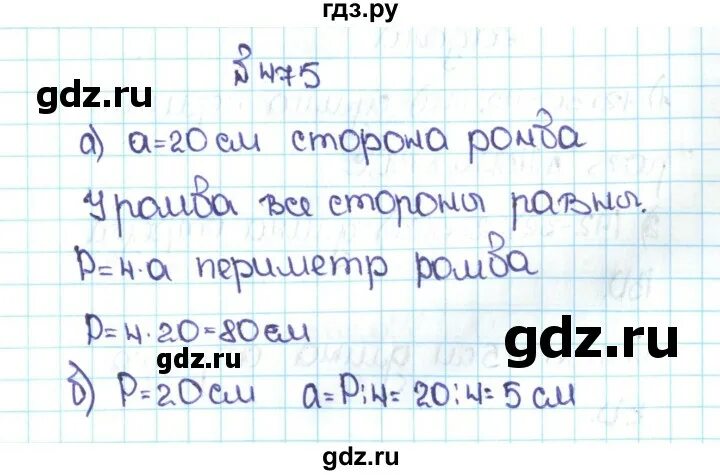 гдз.ру
№475
gdz.ru
gdz.ru
а) a=20 см сторона ромба
У ромба все стороны равны.
P=4·a периметр ромба
P=4·20=80 см
gdz.ru
gdz.ru
б) P=20 см a=P:4=20:4=5 см